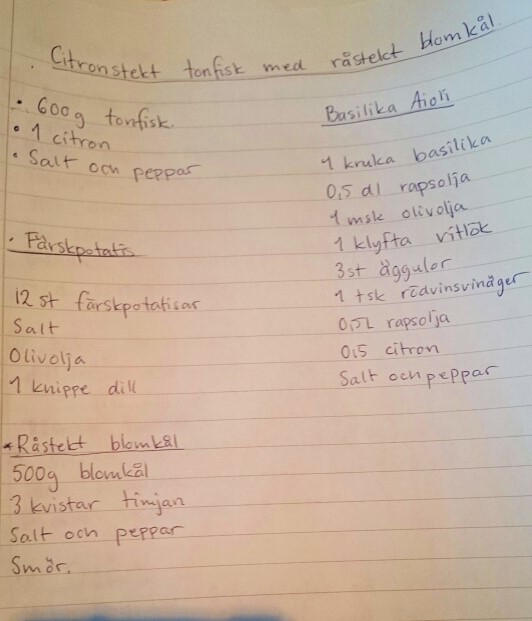 . Citronstekt tonfisk med råstekt blomkål.
• 600g tonfisk
• 1 citron
• Salt och peppar
• Färskpotatis
12 st färskpotatisar
Salt
Olivolja
1 knippe dill
• Råstekt blomkål
500g blomkål
3 kvistar timjan
Salt och peppar
Smör.
Basilika Aioli
1 kruka basilika
0,5 dl rapsolja
1 msk olivolja
1 klyfta vitlök
3st äggulor
1 tsk rödvinsvinäger
0,5L rapsolja
0,5 citron
Salt och peppar